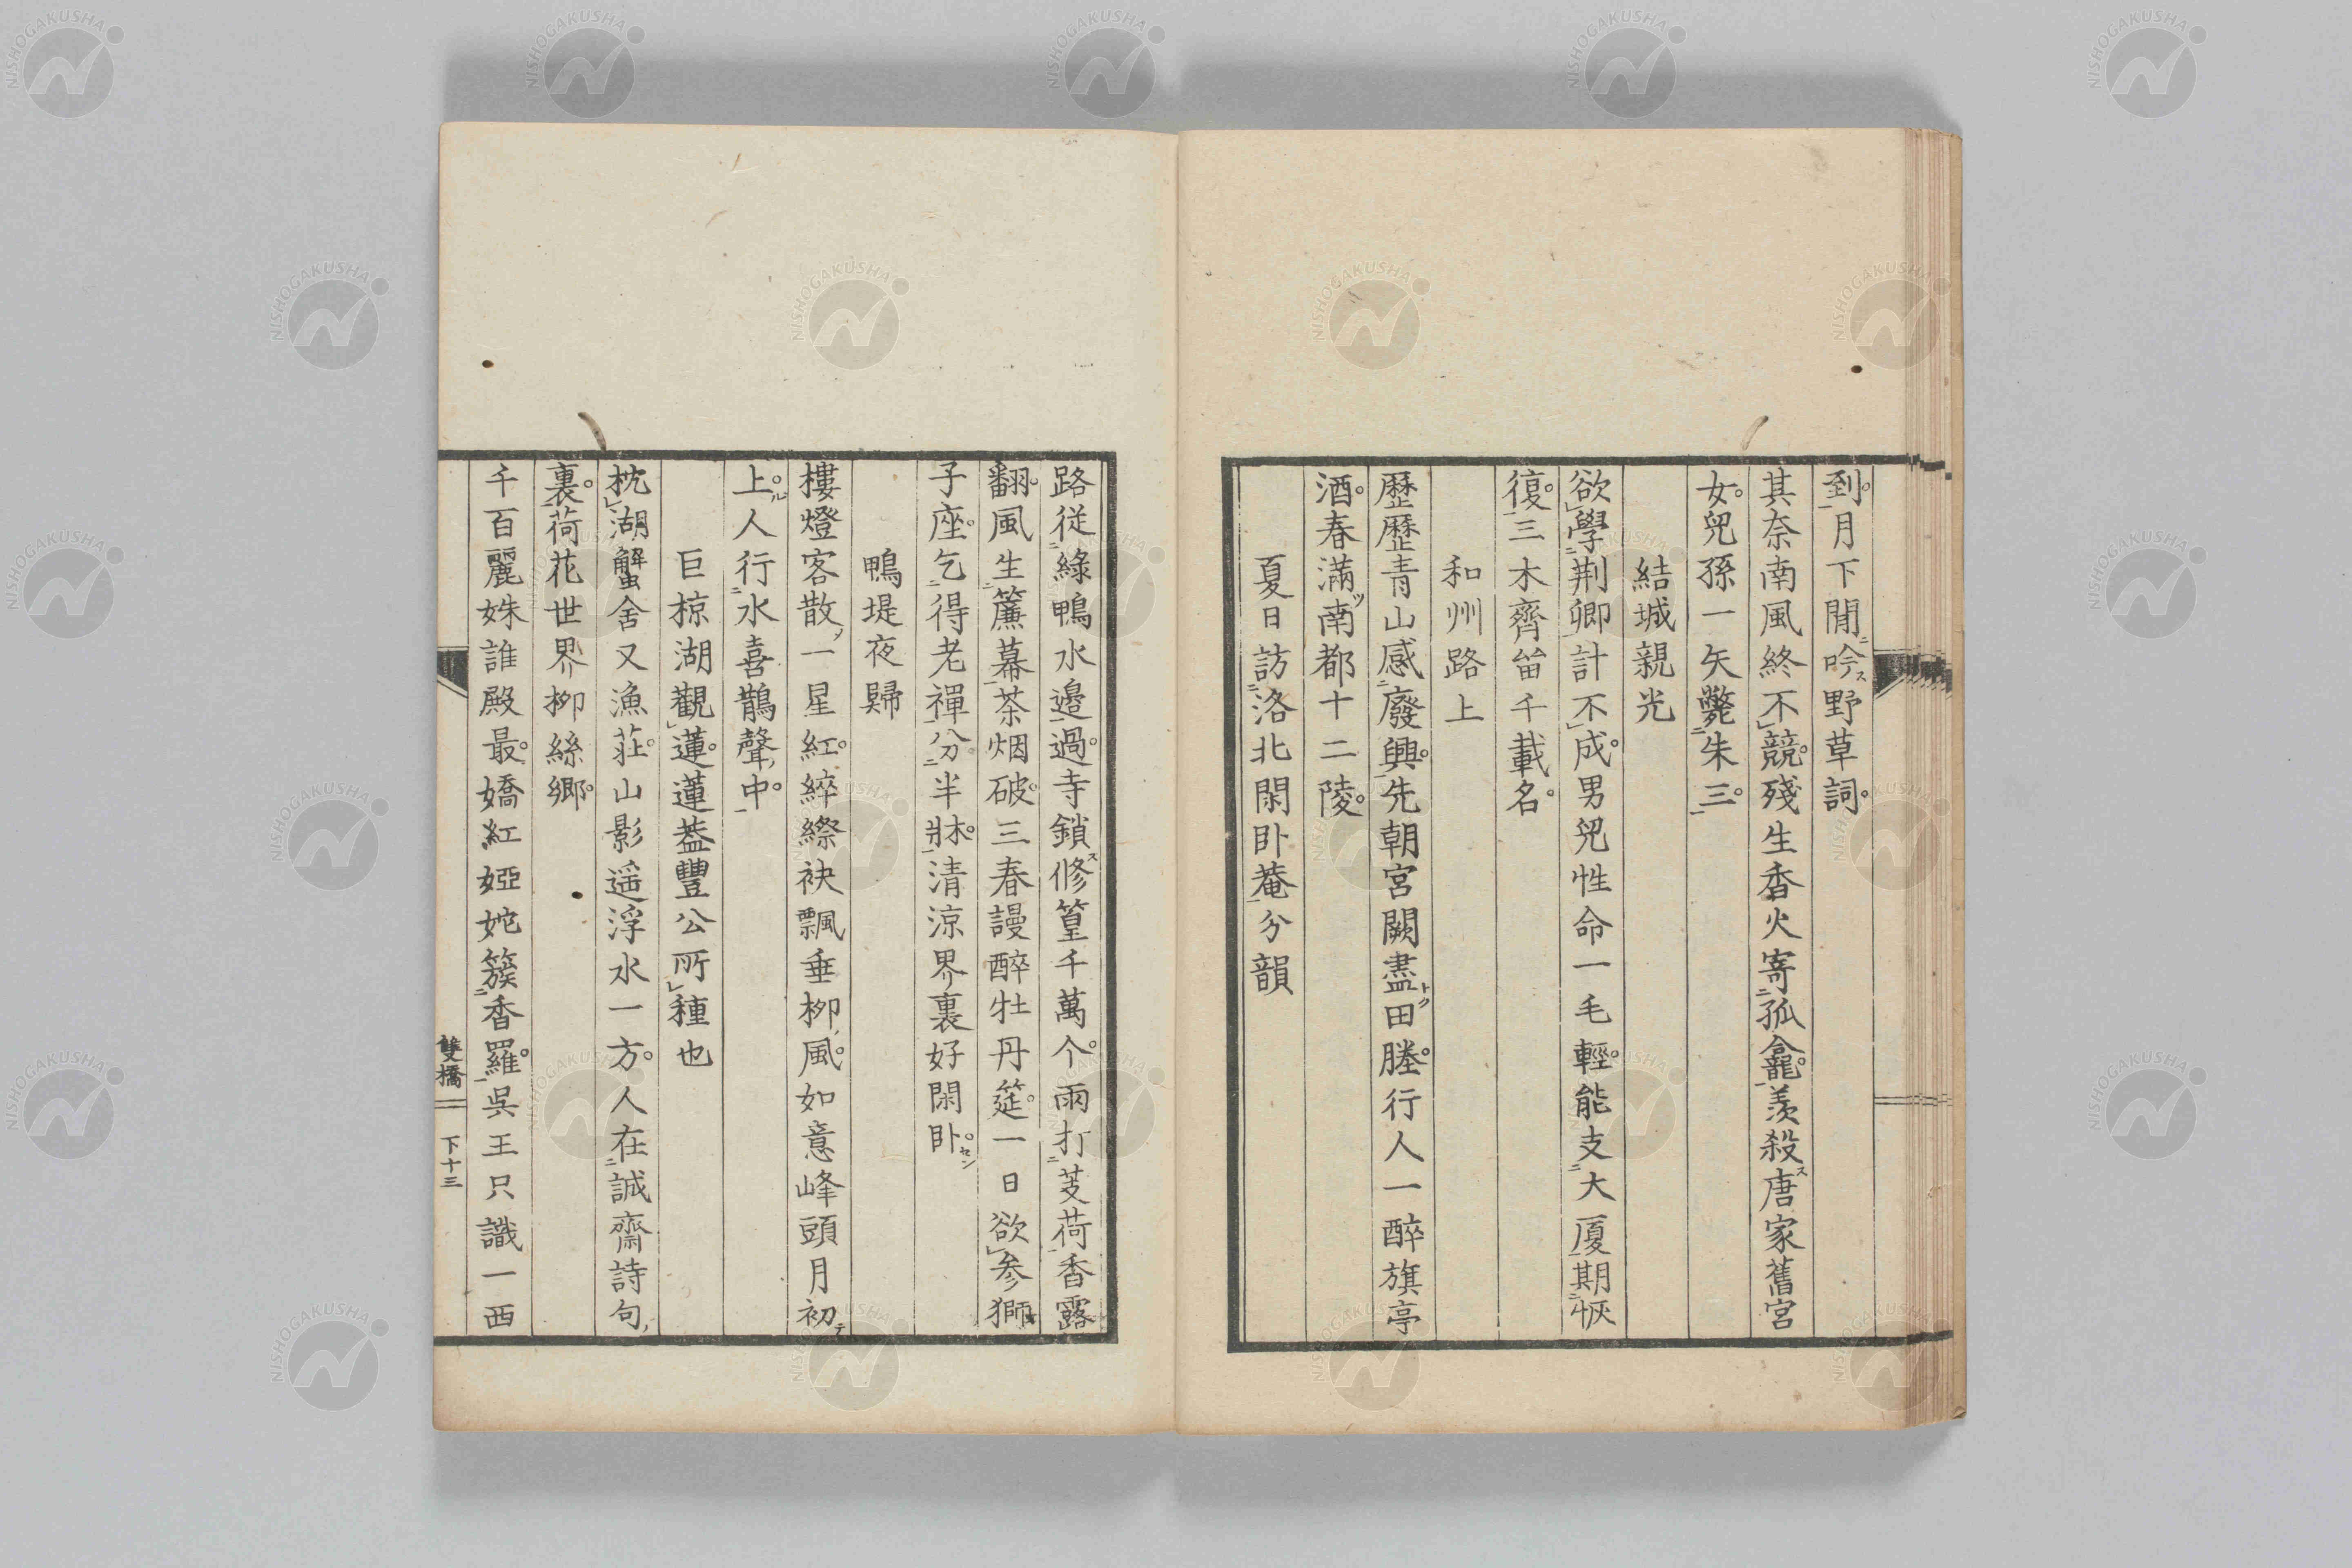 到月下閒吟野草詞
其奈南風終不競殘生香火寄孤龕羨殺唐家舊宮
女兒孫一矢斃朱三
結城親光
欲學荆卿計不成男兒性命一毛輕能支大厦期恢
復三木齊甾千載名
和州路上
歷歷青山感廢興先朝宮闕盡田塍行人一醉旗亭
酒春滿南都十二陵
夏日訪洛北閑臥菴分韻
路從綠鴨水邊過寺鎖修篁千萬个雨打芰荷香露
翻風生簾幕茶烟破三春謾醉牡丹筵一日欲參獅
子座乞得老禪分半牀清涼界裏好閑臥
鴨堤夜歸
樓燈客散一星紅綷縩袂飄垂柳風如意峰頭月初
上人行水喜鵲聲中
巨椋湖觀蓮蓮葢豐公所種也
枕湖蟹舍又漁莊山影遥浮水一方人在誠齋詩句
裏荷花世界柳絲鄉
千百麗姝誰殿最嬌紅婭姹簇香羅吳王只識一西
雙橋 下十三
NISHOGAKUSHA